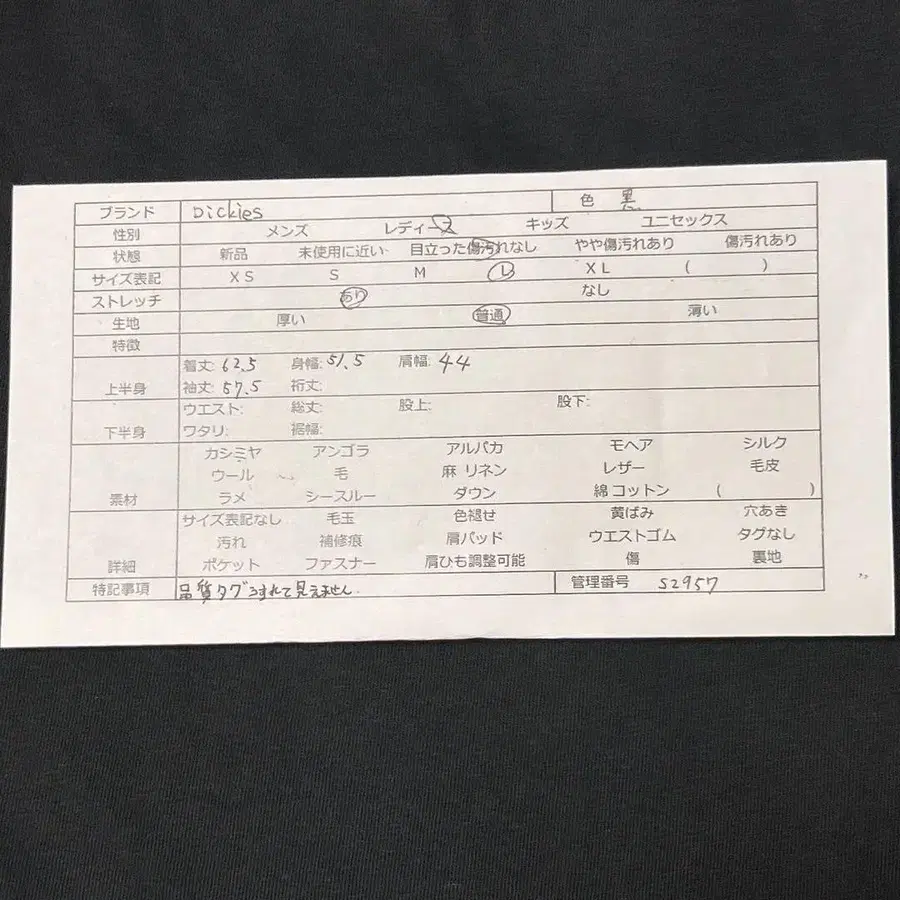 ブランド Dickies 色 黒
性別 メンズ レディース キッズ ユニセックス
状態 新品 未使用に近い 目立った傷汚れなし やや傷汚れあり 傷汚れあり
サイズ表記 XS S M L XL ( )
ストレッチ あり なし
生地 厚い 普通 薄い
特徴
上半身 着丈: 62.5 身幅: 51.5 肩幅: 44
袖丈: 57.5 裄丈:
下半身 ウエスト: 総丈: 股上: 股下:
ワタリ: 裾幅:
カシミヤ アンゴラ アルパカ モヘア シルク
ウール 毛 麻 リネン レザー 毛皮
素材 ラメ シースルー ダウン 綿 コットン ( )
サイズ表記なし 毛玉 色褪せ 黄ばみ 穴あき
汚れ 補修痕 肩パッド ウエストゴム タグなし
詳細 ポケット ファスナー 肩ひも調整可能 傷 裏地
特記事項 品質タグうすれて見えません. 管理番号 S2957